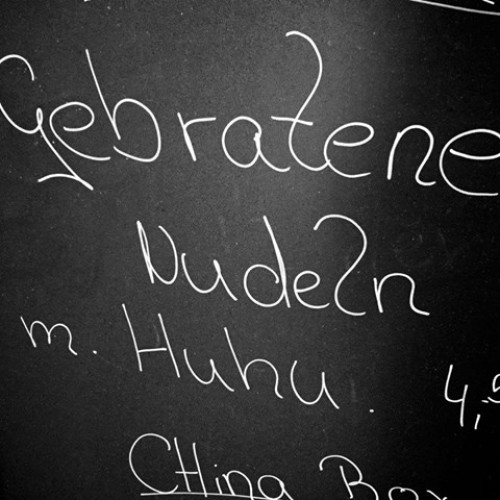 Gebratene
Nudeln
m. Huhu.
4,5
China Box